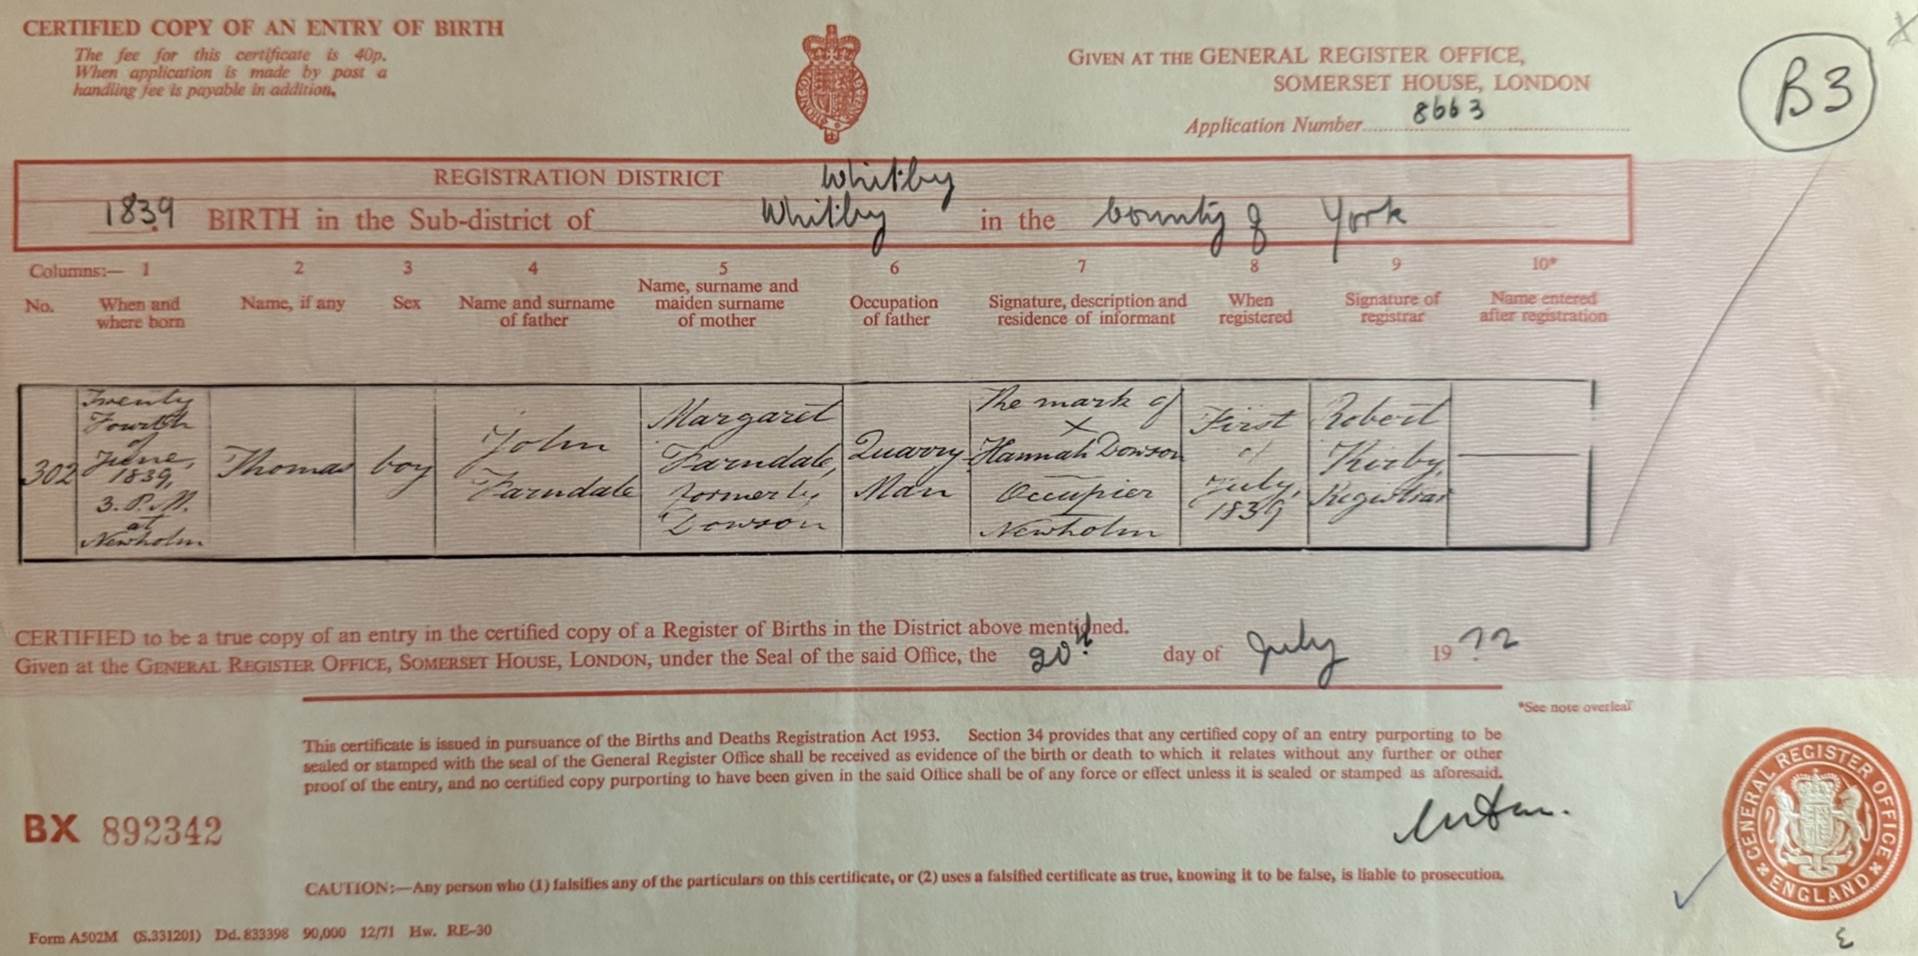 CERTIFIED COPY OF AN ENTRY OF BIRTH
The fee for this certificate is 40p.
When application is made by post a
handling fee is payable in addition.
GIVEN AT THE GENERAL REGISTER OFFICE,
SOMERSET HOUSE, LONDON
Application Number 8663
B3
REGISTRATION DISTRICT Whitby
1839 BIRTH in the Sub-district of Whitby in the County of York
Columns:— 1 2 3 4 5 6 7 8 9 10*
No.
When and
where born
Name, if any
Sex
Name and surname
of father
Name, surname and
maiden surname
of mother
Occupation
of father
Signature, description and
residence of informant
When
registered
Signature of
registrar
Name entered
after registration
302
Twenty
Fourth
of
June,
1839,
3. P.M.
at
Newholm
Thomas
boy
John
Farndale
Margaret
Farndale,
formerly
Dowson
Quarry
Man
The mark of
X
Hannah Dowson
Occupier
Newholm
First
of
July,
1839
Robert
Kirby,
Registrar
CERTIFIED to be a true copy of an entry in the certified copy of a Register of Births in the District above mentioned.
Given at the GENERAL REGISTER OFFICE, SOMERSET HOUSE, LONDON, under the Seal of the said Office, the 20th day of July 1972
*See note overleaf
This certificate is issued in pursuance of the Births and Deaths Registration Act 1953. Section 34 provides that any certified copy of an entry purporting to be
sealed or stamped with the seal of the General Register Office shall be received as evidence of the birth or death to which it relates without any further or other
proof of the entry, and no certified copy purporting to have been given in the said Office shall be of any force or effect unless it is sealed or stamped as aforesaid.
BX 892342
GENERAL REGISTER OFFICE
ENGLAND
CAUTION:—Any person who (1) falsifies any of the particulars on this certificate, or (2) uses a falsified certificate as true, knowing it to be false, is liable to prosecution.
Form A502M (S.331201) Dd. 833398 90,000 12/71 Hw. RE-30